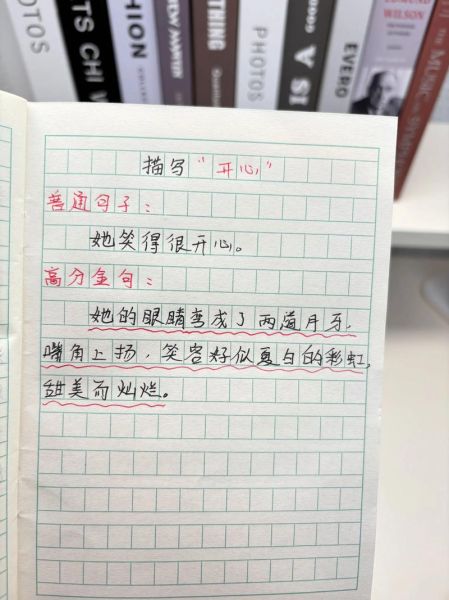 PHOTOS
TS CHI
HION
NEW MARTIN
THING
PHOTOS
A SI
EVERG
EDMUND
WILSON
THE MUSIC
描写“开心”
普通句子：
她笑得很开心。
高分金句：
她的眼睛弯成了两道月牙，
嘴角上扬，笑容好似夏日的彩虹，
甜美而灿烂。